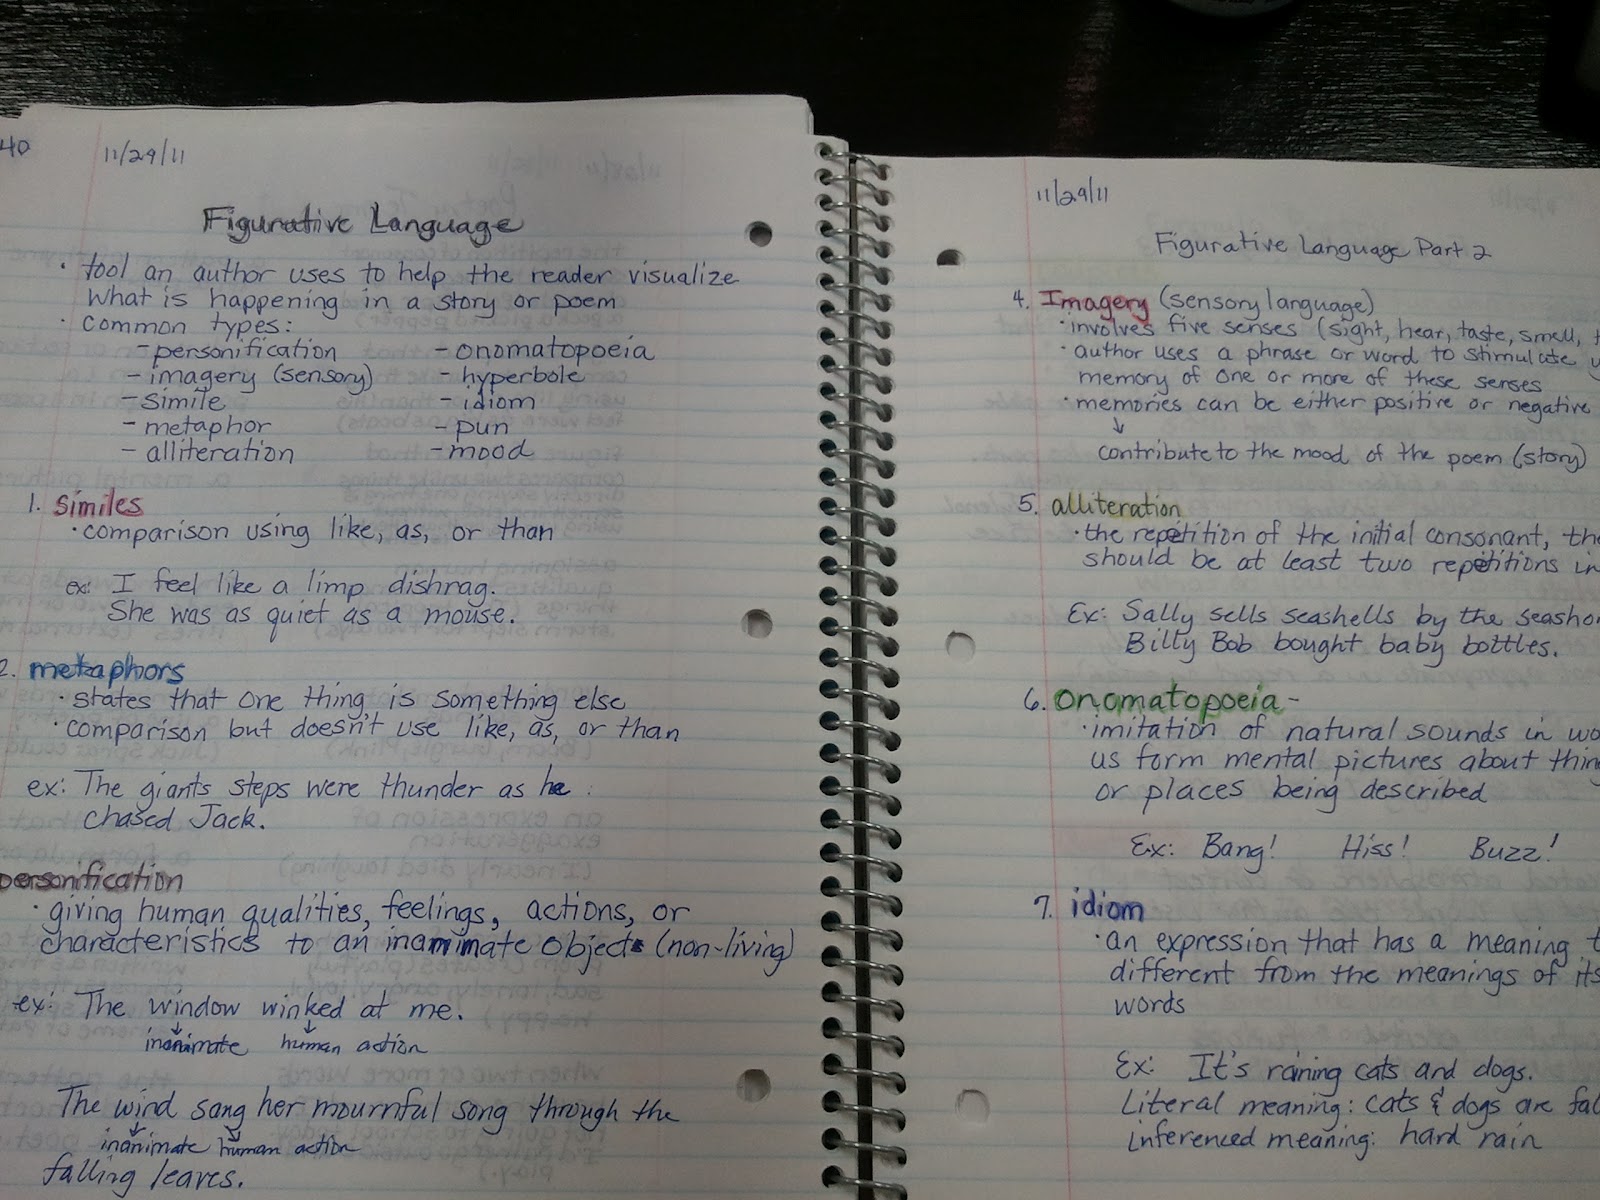 40 11/29/11
Figurative Language
· tool an author uses to help the reader visualize
what is happening in a story or poem
· common types:
- personification - onomatopoeia
- imagery (sensory) - hyperbole
- simile - idiom
- metaphor - pun
- alliteration - mood
1. similes
· comparison using like, as, or than
ex: I feel like a limp dishrag.
She was as quiet as a mouse.
2. metaphors
· states that one thing is something else
· comparison but doesn't use like, as, or than
ex: The giants steps were thunder as he
chased Jack.
personification
· giving human qualities, feelings, actions, or
characteristics to an inanimate objects (non-living)
ex: The window winked at me.
inanimate human action
The wind sang her mournful song through the
inanimate human action
falling leaves.
11/29/11
Figurative Language Part 2
4. Imagery (sensory language)
· involves five senses (sight, hear, taste, smell,
· author uses a phrase or word to stimulate
memory of one or more of these senses
· memories can be either positive or negative
↓
contribute to the mood of the poem (story)
5. alliteration
· the repetition of the initial consonant,
should be at least two repetitions in
Ex: Sally sells seashells by the
Billy Bob bought baby bottles.
6. onomatopoeia -
· imitation of natural sounds in
us form mental pictures about
or places being described
Ex: Bang! Hiss! Buzz!
7. idiom
· an expression that has a meaning
different from the meanings of its
words
Ex: It's raining cats and dogs.
Literal meaning: cats & dogs are
inferenced meaning: hard rain